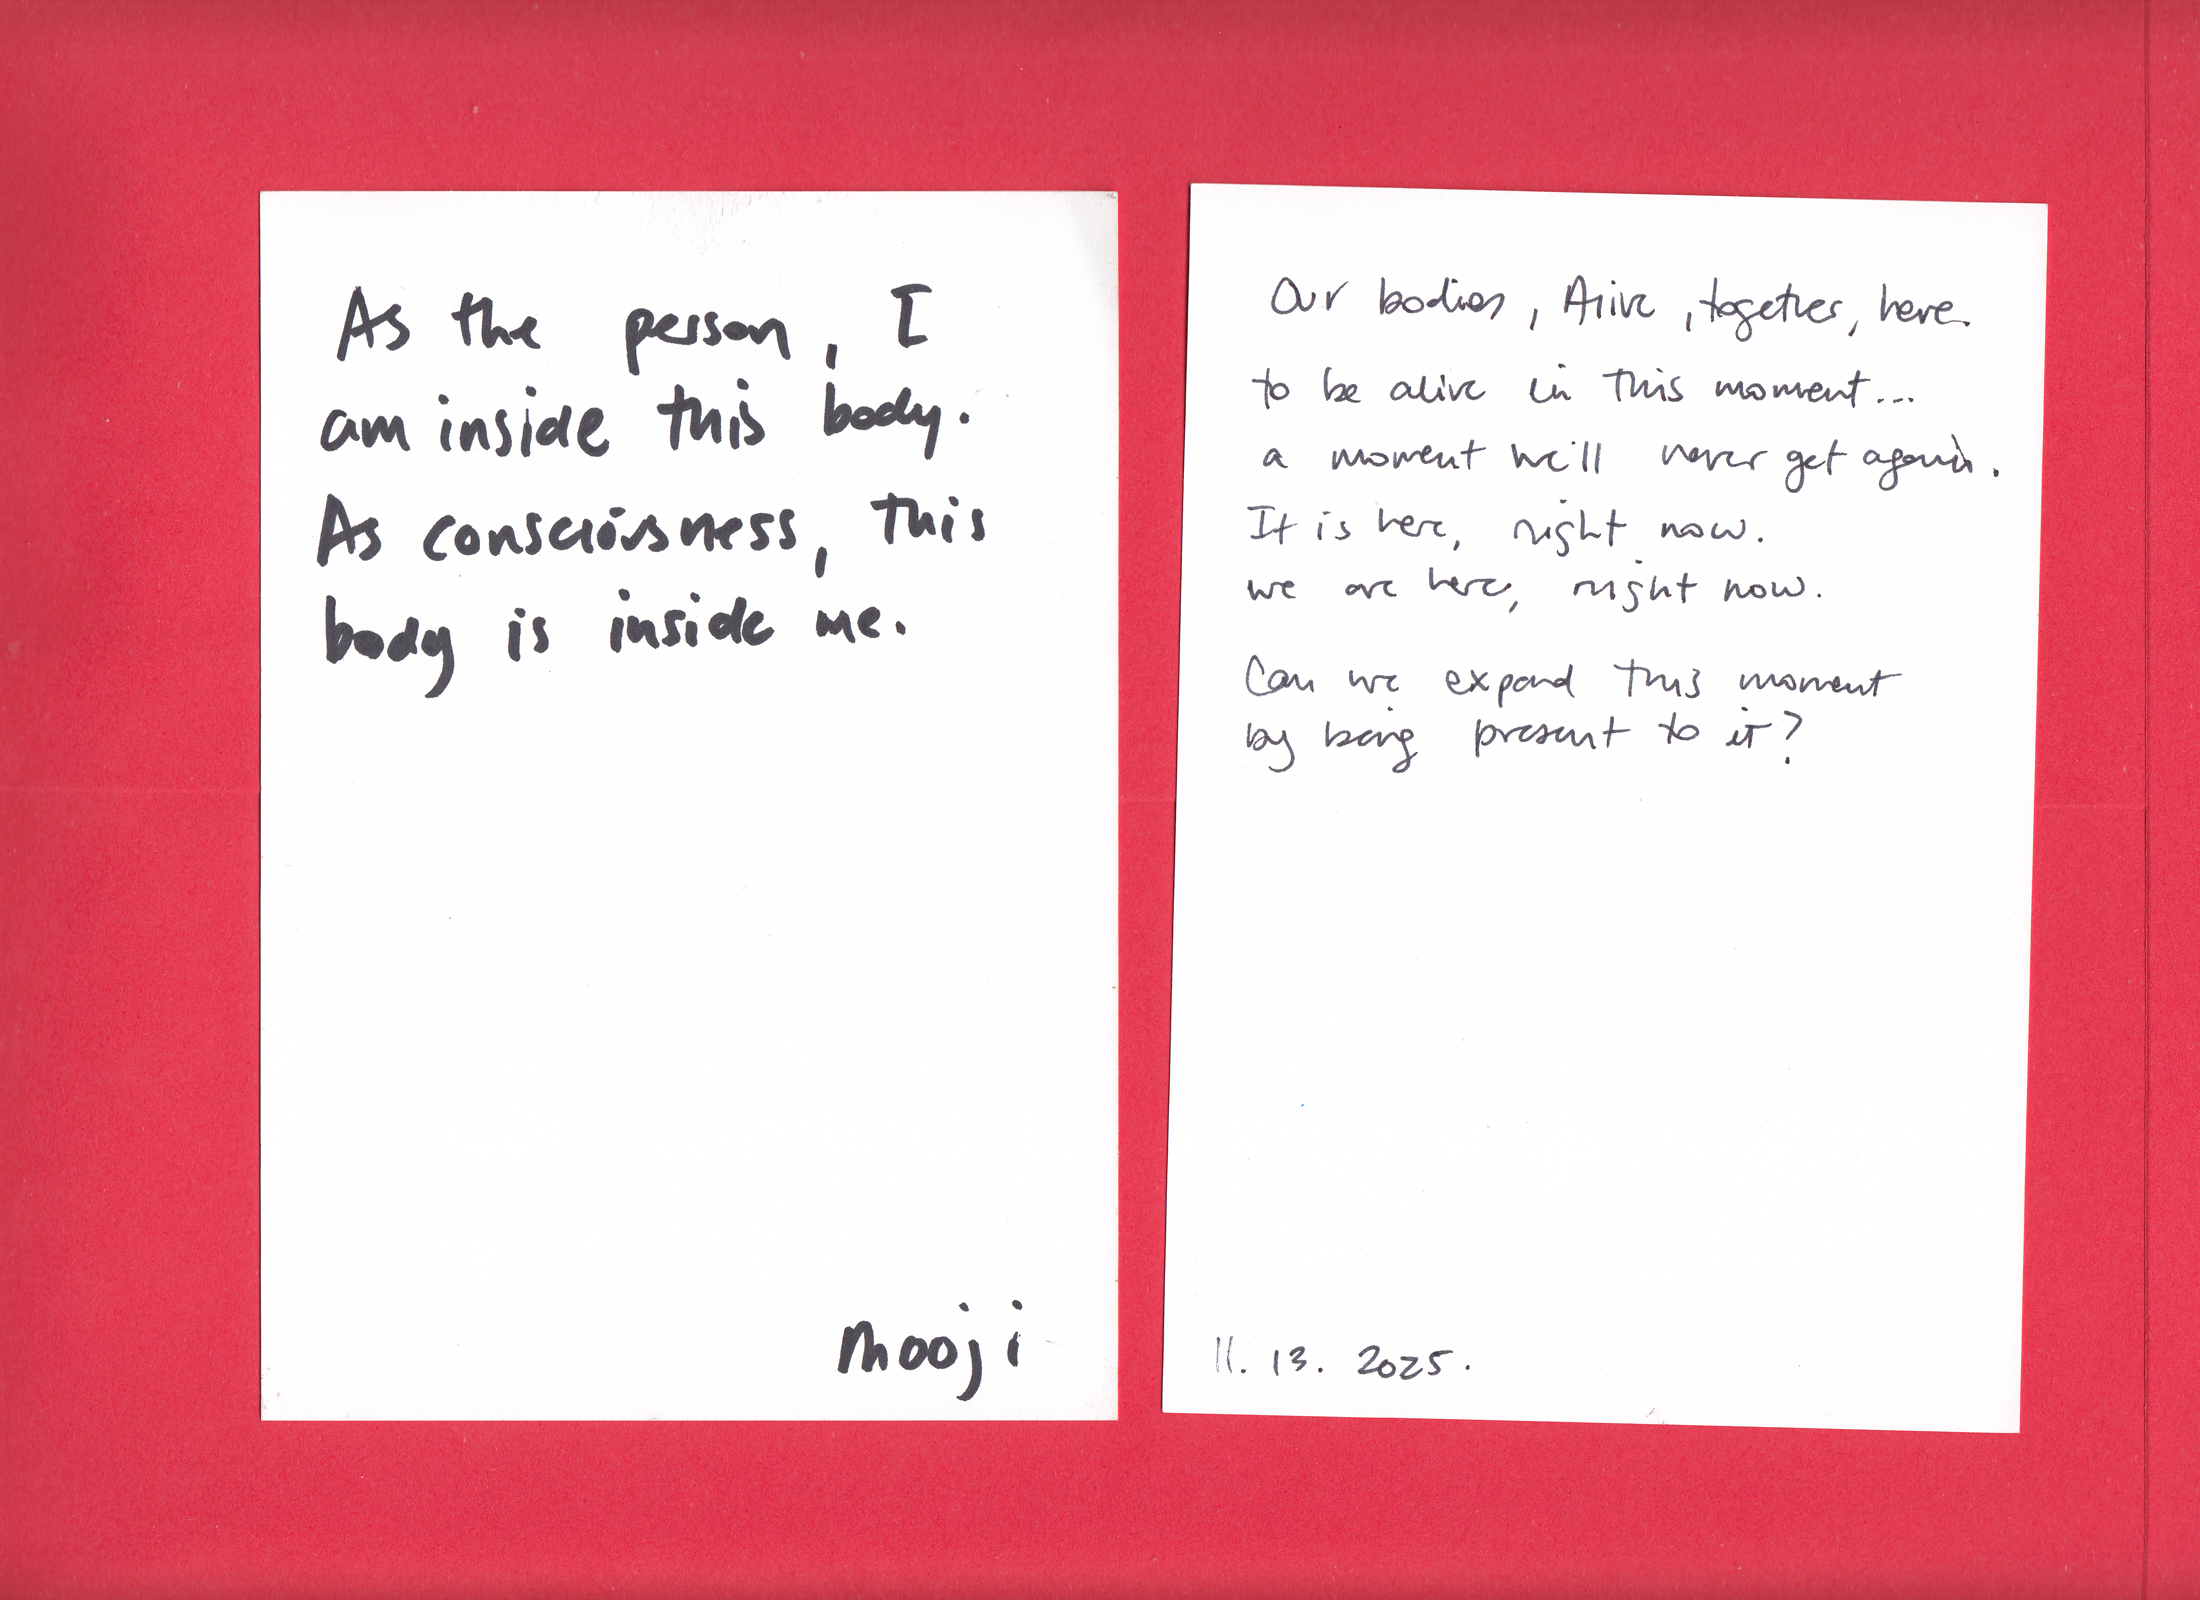 As the person, I
am inside this body.
As consciousness, this
body is inside me.
mooji
Our bodies, Alive, together, here.
to be alive in this moment...
a moment we'll never get again.
It is here, right now.
we are here, right now.
Can we expand this moment
by being present to it?
11. 13. 2025.